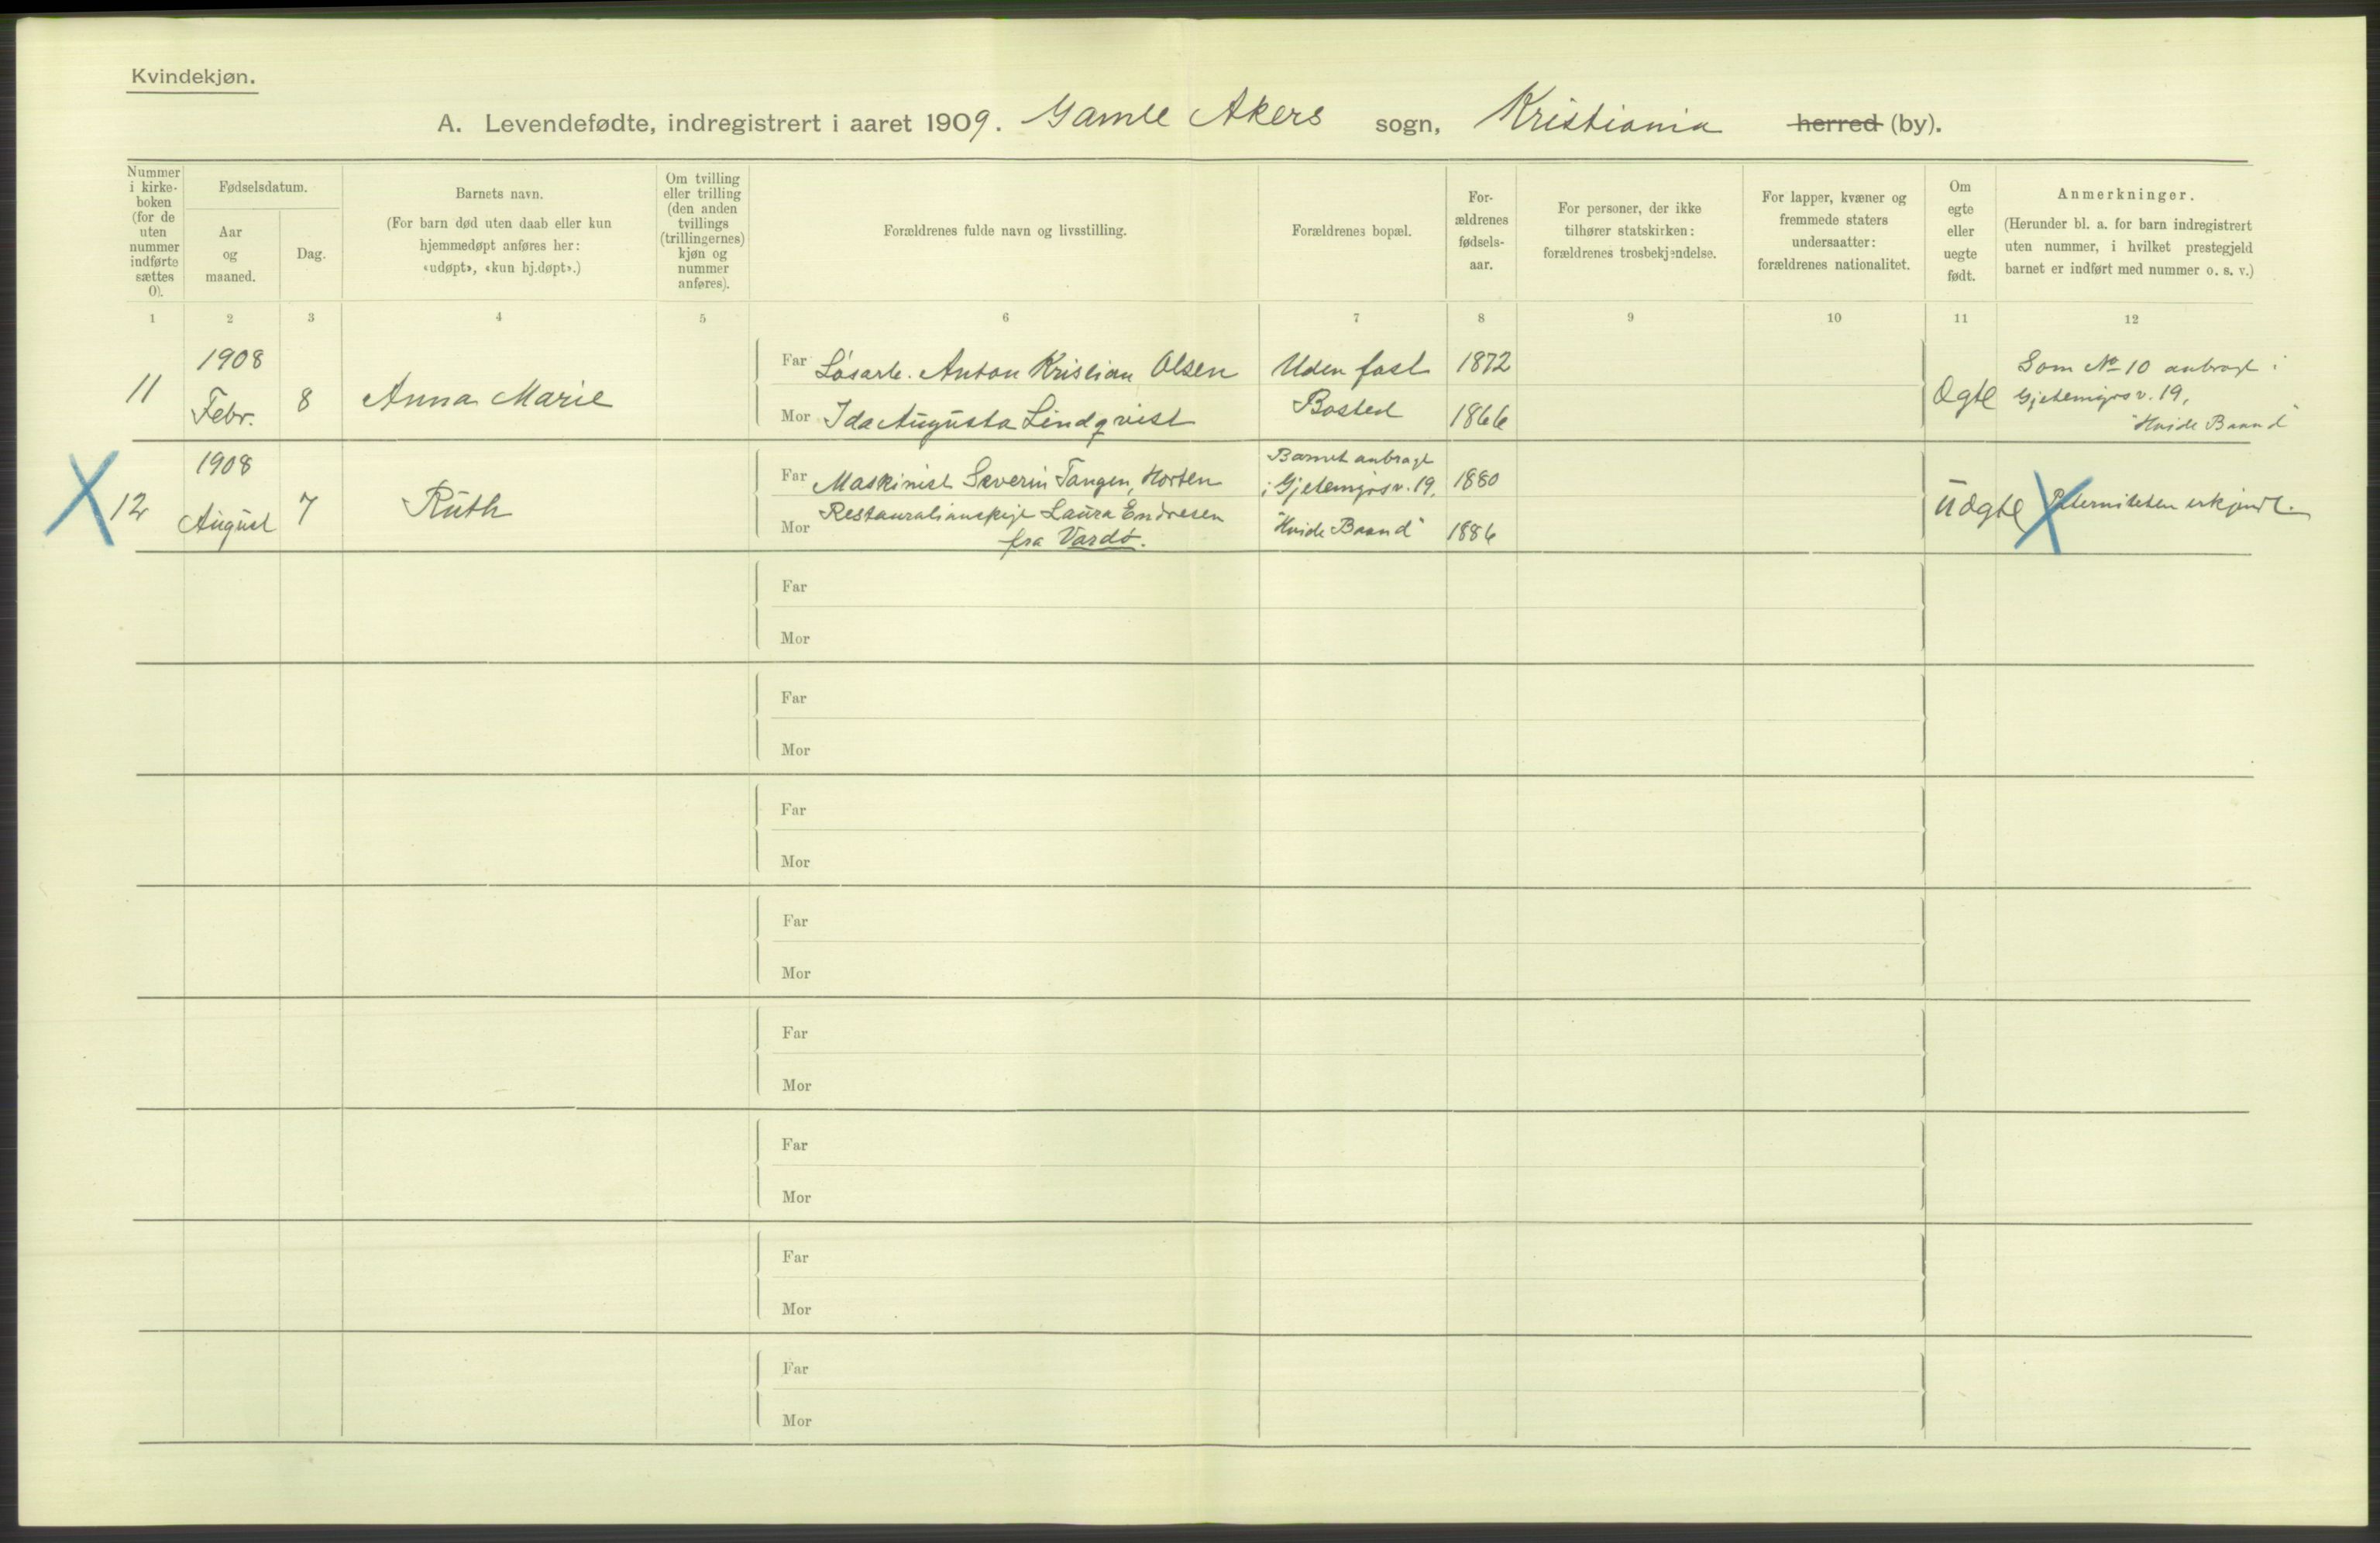 Kvindekjøn.
A. Levendefødte, indregistrert i aaret 1909. Gamle Akers sogn, Kristiania herred (by).
Nummer i kirkeboken (for de uten nummer indførte sættes 0).
Fødselsdatum.
Aar og maaned.
Dag.
Barnets navn.
(For barn død uten daab eller kun hjemmedøpt anføres her: «udøpt», «kun hj.døpt».)
Om tvilling eller trilling (den anden tvillings (trillingernes) kjøn og nummer anføres).
Forældrenes fulde navn og livsstilling.
Forældrenes bopæl.
Forældrenes fødselsaar.
For personer, der ikke tilhører statskirken: forældrenes trosbekjendelse.
For lapper, kvæner og fremmede staters undersaatter: forældrenes nationalitet.
Om egte eller uegte født.
Anmerkninger.
(Herunder bl. a. for barn indregistrert uten nummer, i hvilket prestegjeld barnet er indført med nummer o. s. v.)
1 2 3 4 5 6 7 8 9 10 11 12
11 1908 Febr. 8 Anna Marie
Far Løsarb. Anton Kristian Olsen Uden fast 1872
Mor Ida Augusta Lindqvist Bosted 1866
Ægte
Som No 10 anbragt i
Gjetemyrsv. 19,
"Hvide Baand"
X 12 1908 August 7 Ruth
Far Maskinist Severin Tangen, Horten
Mor Restaurationspige Laura Endresen
fra Vardø.
Barnet anbragt
i Gjetemyrsv. 19,
"Hvide Baand"
1880
1886
Uægte X Paterniteten erkjendt.
Far
Mor
Far
Mor
Far
Mor
Far
Mor
Far
Mor
Far
Mor
Far
Mor
Far
Mor